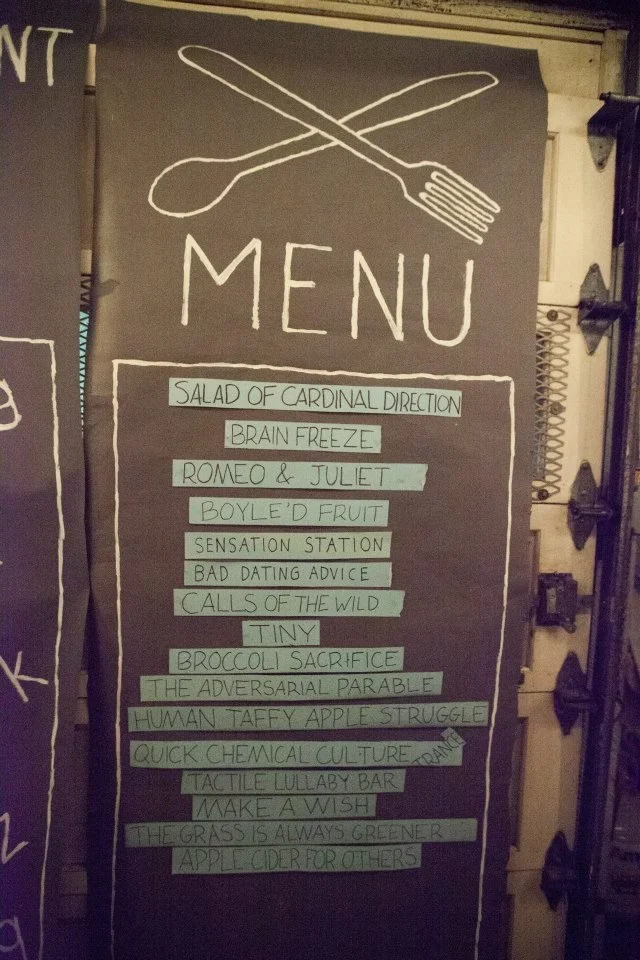 NT
MENU
SALAD OF CARDINAL DIRECTION
BRAIN FREEZE
ROMEO & JULIET
BOYLE'D FRUIT
SENSATION STATION
BAD DATING ADVICE
CALLS OF THE WILD
TINY
BROCCOLI SACRIFICE
THE ADVERSARIAL PARABLE
HUMAN TAFFY APPLE STRUGGLE
QUICK CHEMICAL CULTURE TRANCE
TACTILE LULLABY BAR
MAKE A WISH
THE GRASS IS ALWAYS GREENER
APPLE CIDER FOR OTHERS